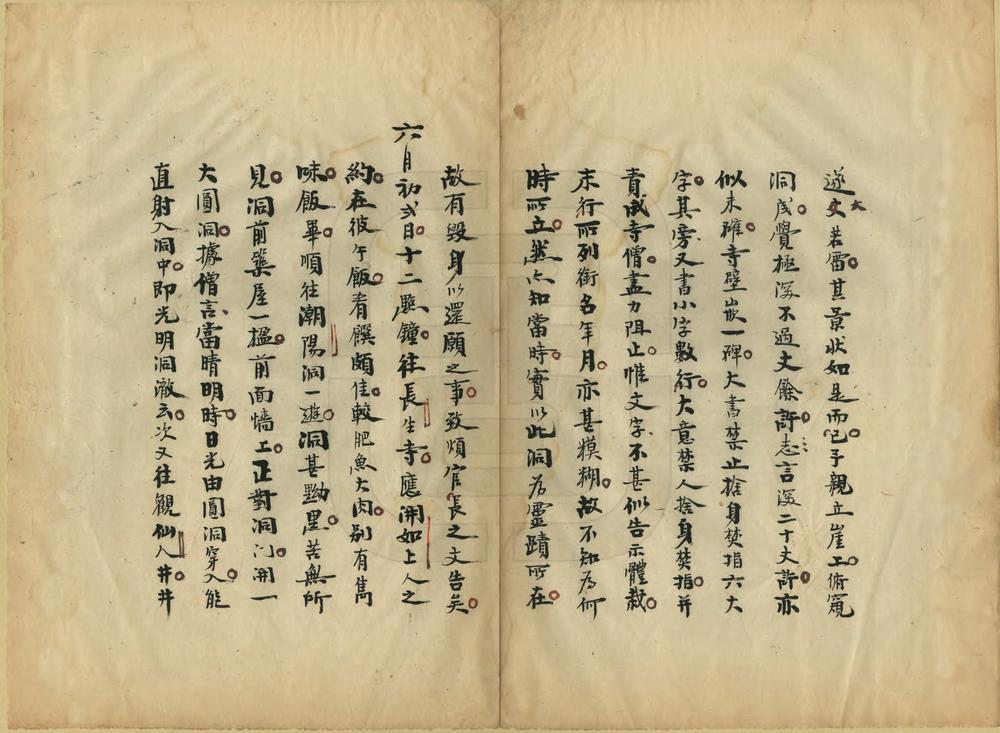 遂丈大若雷其景狀如是而已予親立崖上俯窺
洞底覺極深不過丈餘許志言深二十丈許亦
似未確寺壁嵌一碑大書禁止捨身焚指六大
字其旁又書小字數行大意禁人捨身焚指并
責成寺僧盡力阻止惟文字不甚似告示體裁
末行所列銜名年月亦甚糢糊故不知為何
時所立然亦知當時實以此洞為靈蹟所在
故有毀身以還願之事致煩官長之文告矣
六月初弍日十二點鐘往長生寺應開如上人之
約在彼午飯肴饌頗佳較肥魚大肉別有雋
味飯畢順往潮陽洞一遊洞甚黝黑苦無所
見洞前築屋一楹前面牆上正對洞门開一
大圓洞據僧言當晴明時日光由圓洞穿入能
直射入洞中即光明洞澈云次又往觀仙人井井